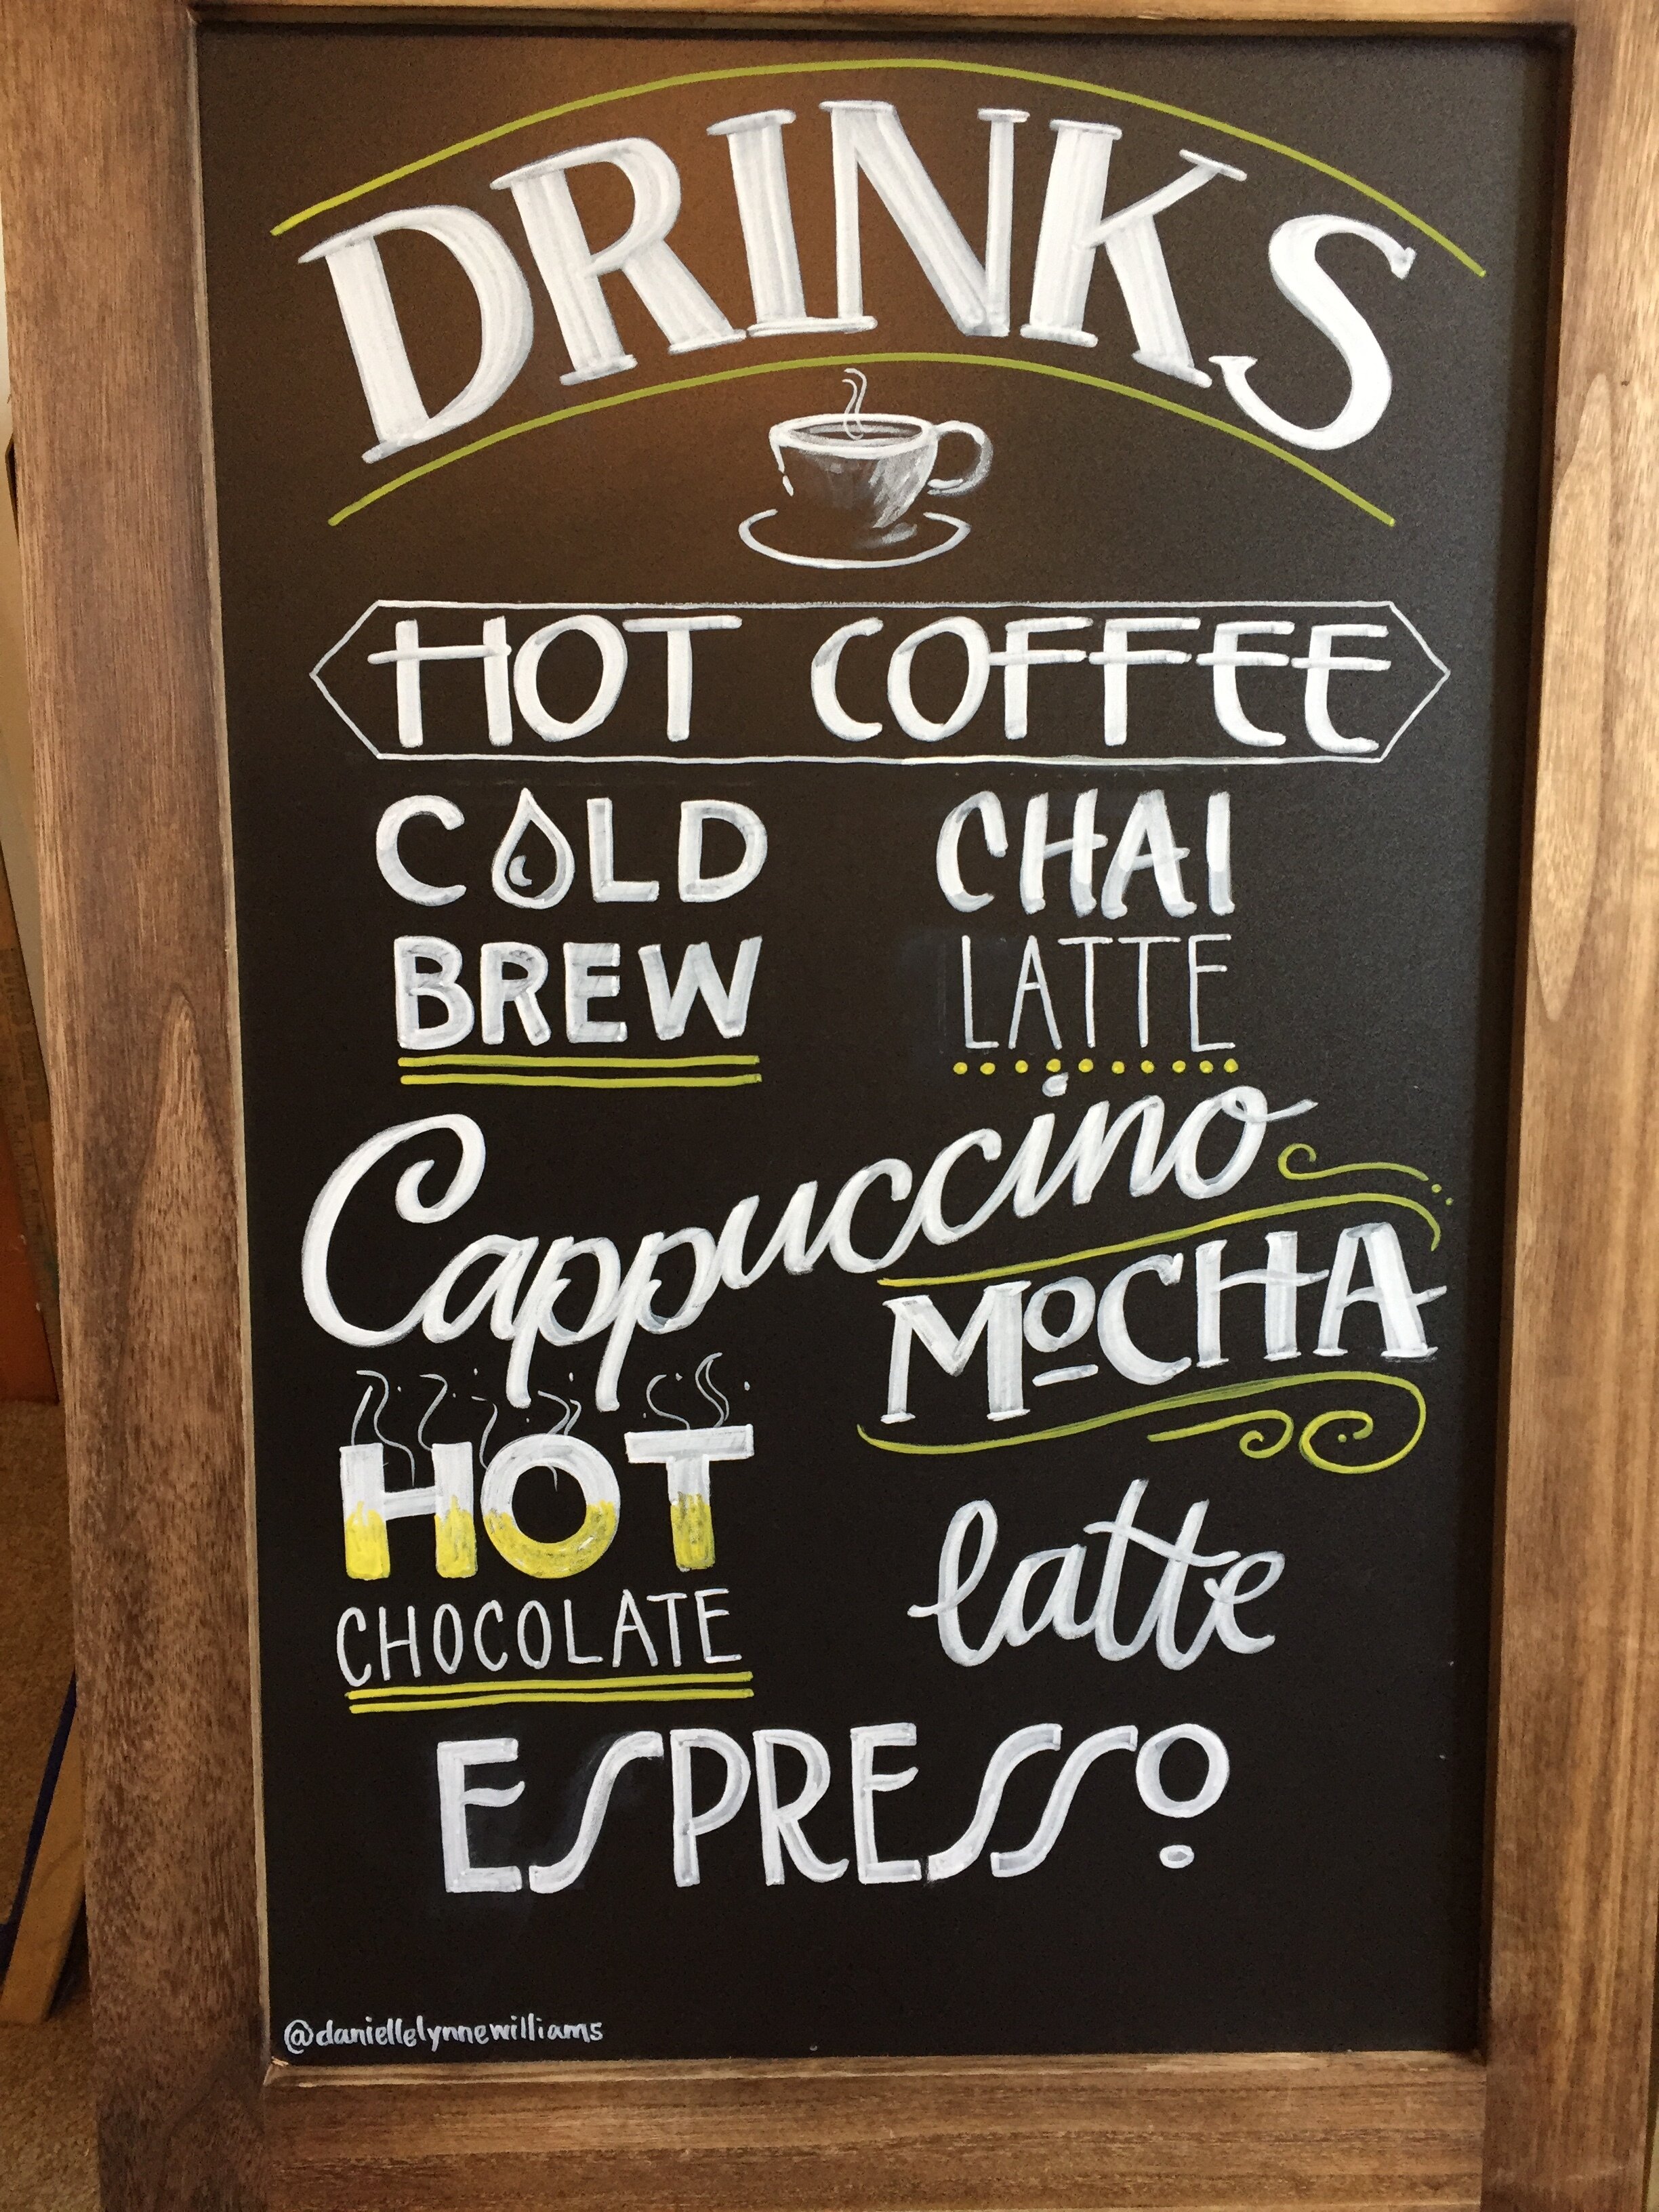 DRINKS
HOT COFFEE
COLD
BREW
CHAI
LATTE
Cappuccino
MOCHA
HOT
CHOCOLATE
latte
ESPRESSO
@daniellelynnewilliams